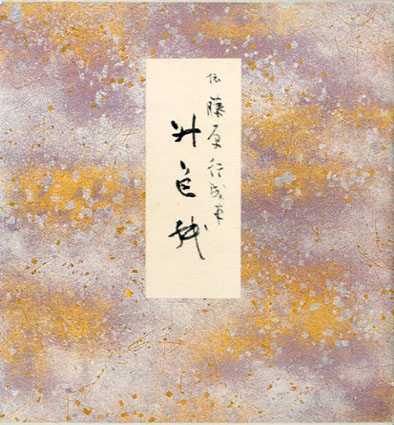 伝 藤原行成筆
升色紙